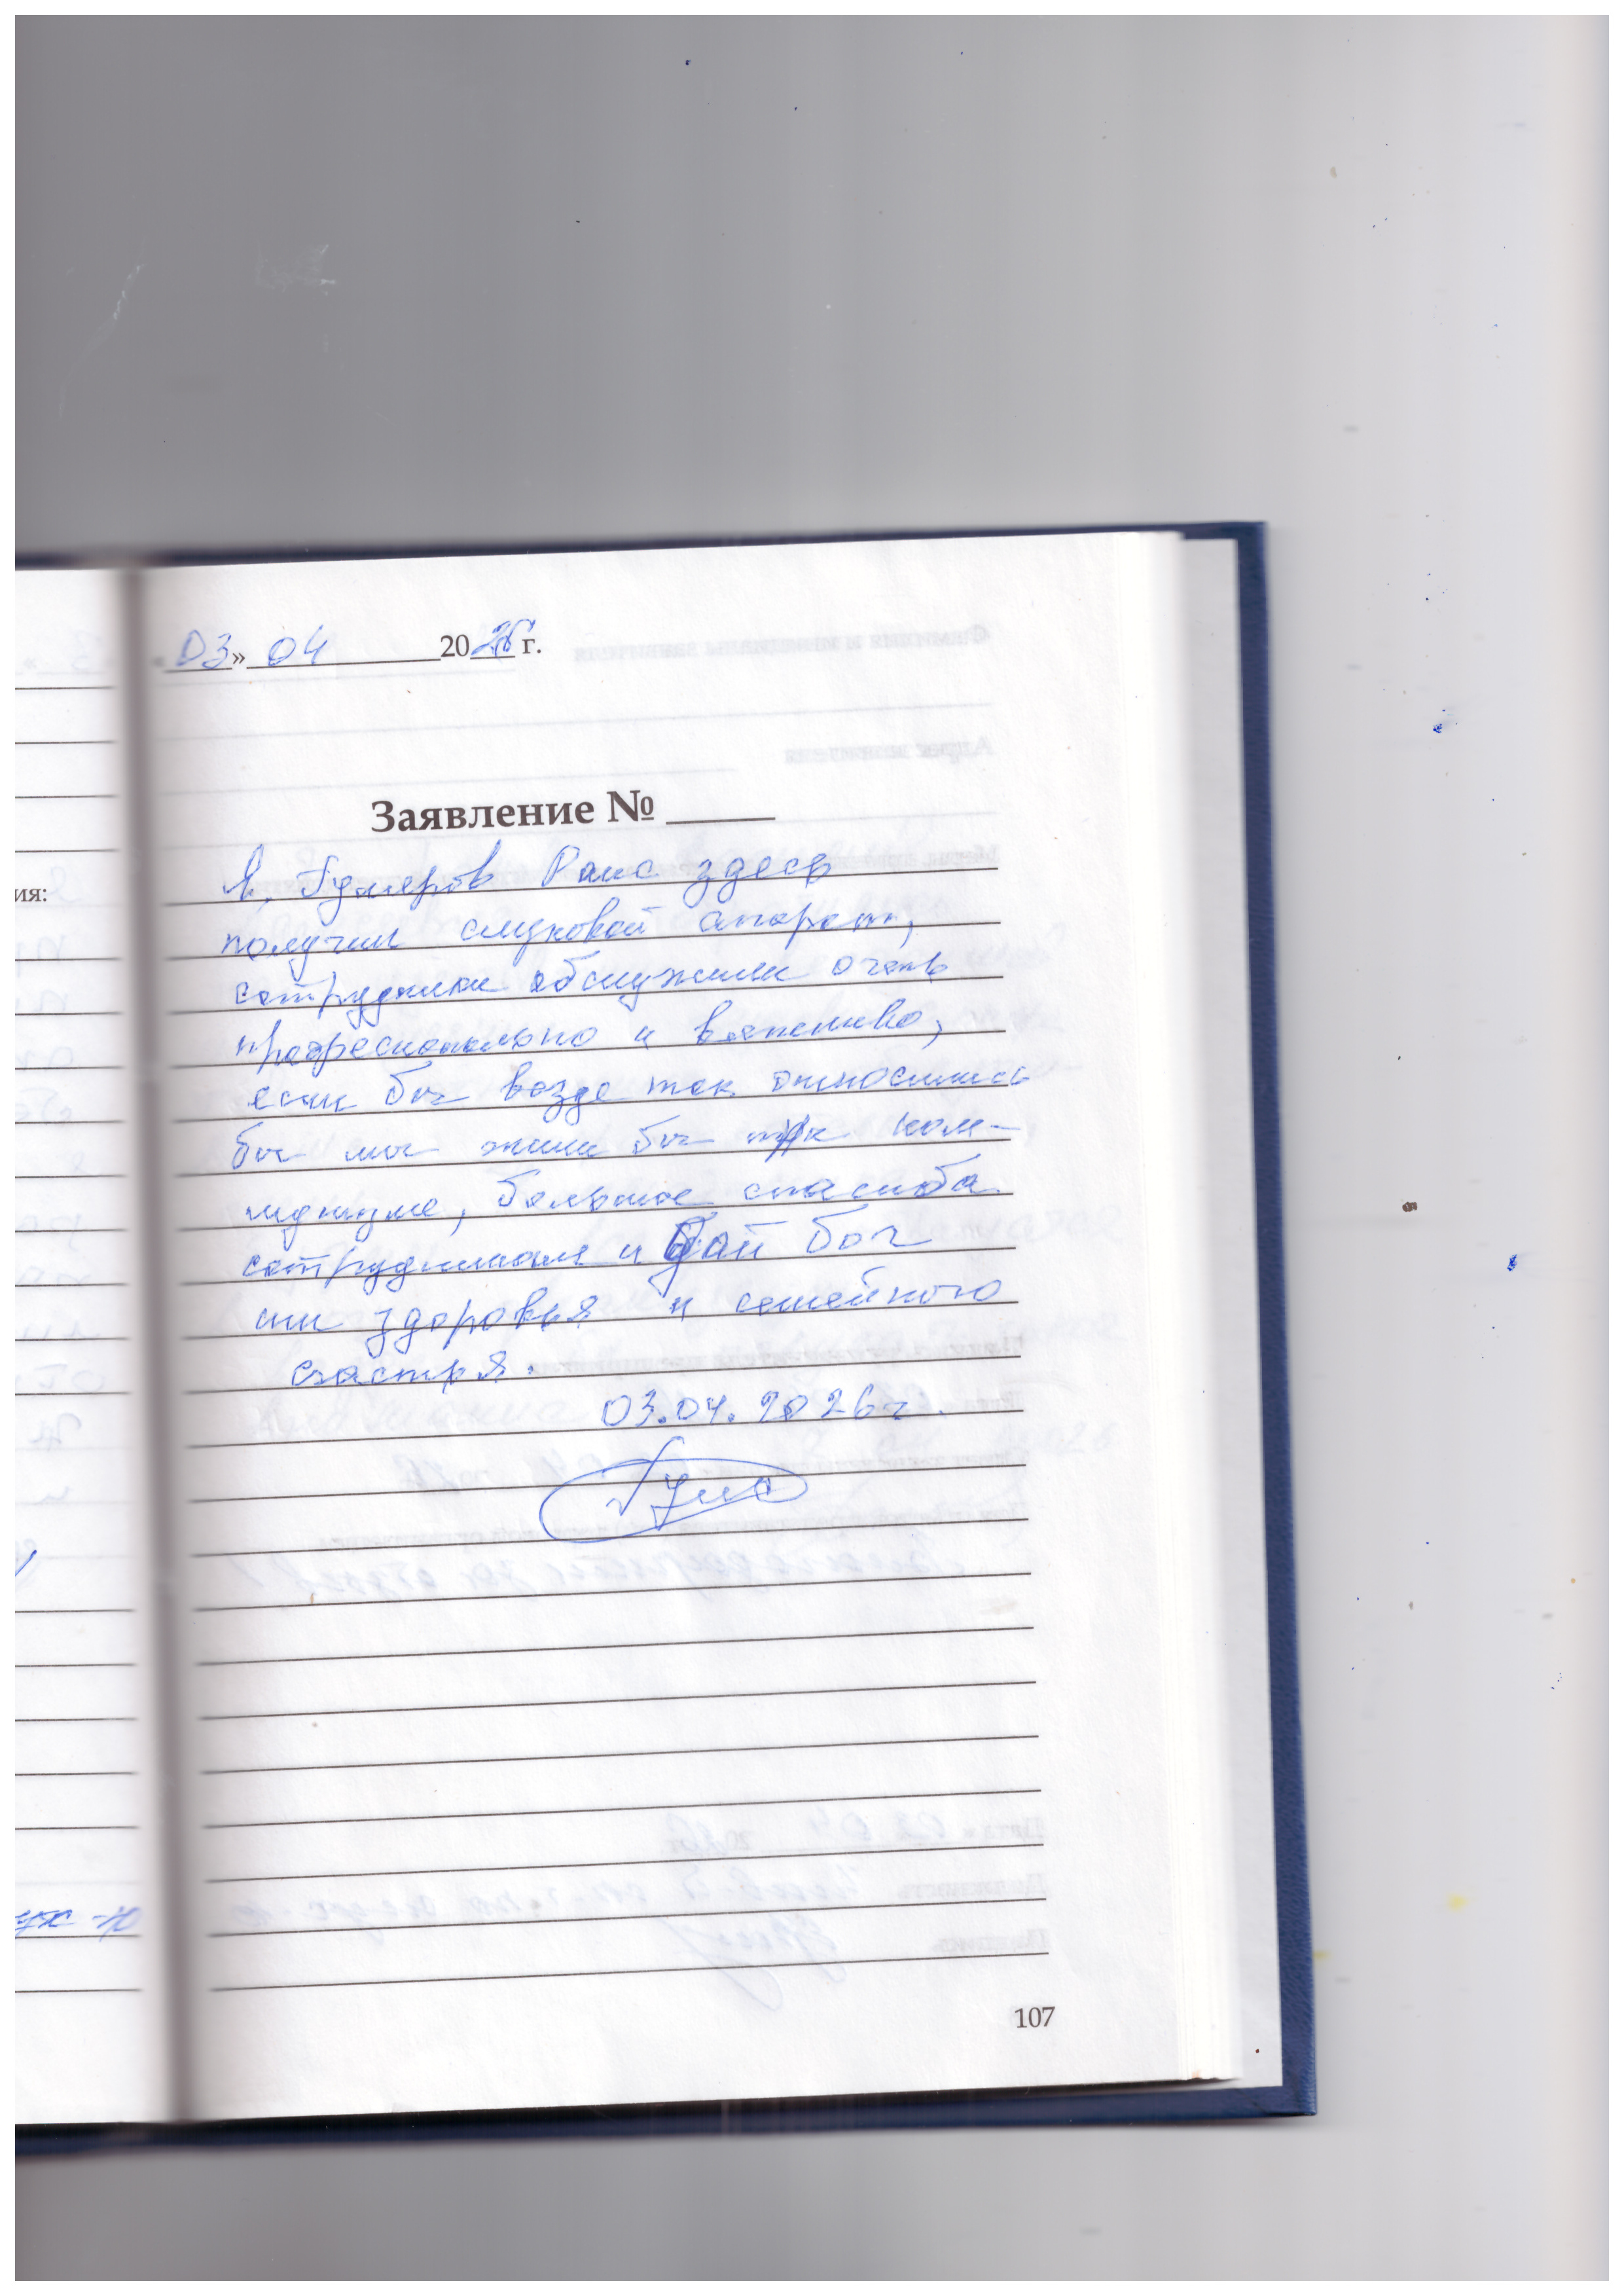 «03» 04 2026 г.
Заявление №
Я, Гумеров Раис здесь
получил слуховой апарат,
сотрудники обслужили очень
професионально и вежливо,
если бы везде так относились
бы мы жили бы при ком-
мунизме, большое спасиба
сотрудникам и дай бог
им здоровья и семейного
счастья.
03.04.2026 г.
107
ия: